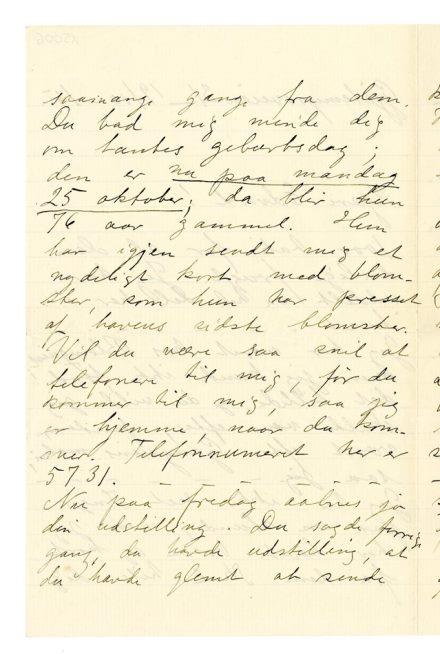 saamange gange fra dem.
Du bad mig minde dig
om tantes gebærtsdag;
den er nu paa mandag
25 oktober; da blir hun
76 aar gammel. Hun
har igjen sendt mig et
nydeligt kort med blom-
ster, som hun har presset
af havens sidste blomster.
Vil du være saa snil at
telefonere til mig, før du
kommer til mig, saa jeg
er hjemme, naar du kom-
mer. Telefonnumeret her er
5731. — — — — —
Nu paa fredag aabnes jo
din udstilling. Du sagde forrige
gang, du havde udstilling, at
du havde glemt at sende